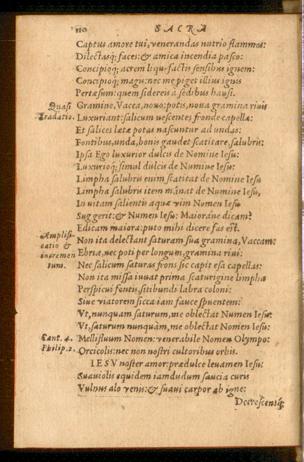 110 SACRA
Captus amore tui, venerandas nutrio flammas:
Dilectasq; faces: & amica incendia pasco:
Concipioq; acrem liquefactis sensibus ignem:
Concipioq; magis: nec me piget illius ignis
Pertæsum: quem sidereis à sedibus hausi.
Quasi Gramine, Vacca, nouo: potis, noua gramina riuis
Tradatio. Luxuriant: salicum vescentes fronde capellæ:
Et salices latæ potas nascuntur ad undas:
Fontibus, unda, bonis gaudet scatitare, salubris:
Ipsa Ego luxurior dulcis de Nomine Iesu:
Luxurioq; simul dulcis de Numine Iesu:
Limpha salubris enim scaticat de Nomine Iesu
Limpha salubris item manat de Numine Iesu,
In vitam salientis aquæ vim Numen Iesu
Suggerit: & Numen Iesu: Maioráne dicam?
Edicam maiora: puto mihi dicere fas est.
Amplificatio & incrementum.
Non ita delectant saturam sua gramina, Vaccam:
Ebria, nec poti per longum, gramina riui:
Nec salicum saturas frons sic capit esa capellas:
Non ita missa iuuat prima scaturigine limpha
Perspicui fontis, sitibundi labra coloni:
Siue viatorem sicca iam fauce spuentem:
Vt, nunquam saturum, me oblectat Numen Iesu:
Vt, saturum nunquàm, me oblectat Nomen Iesu:
Cant. 4. Mellifluum Nomen: venerabile Nomen Olympo:
Philip. 2. Orcicolis: nec non nostri cultoribus orbis.
IESV noster amor: prædulce leuamen Iesu:
Suauiolis equidem iamdudum saucia curis
Vulnus alo venis: & suaui carpor ab igne:
Decrescentisq;